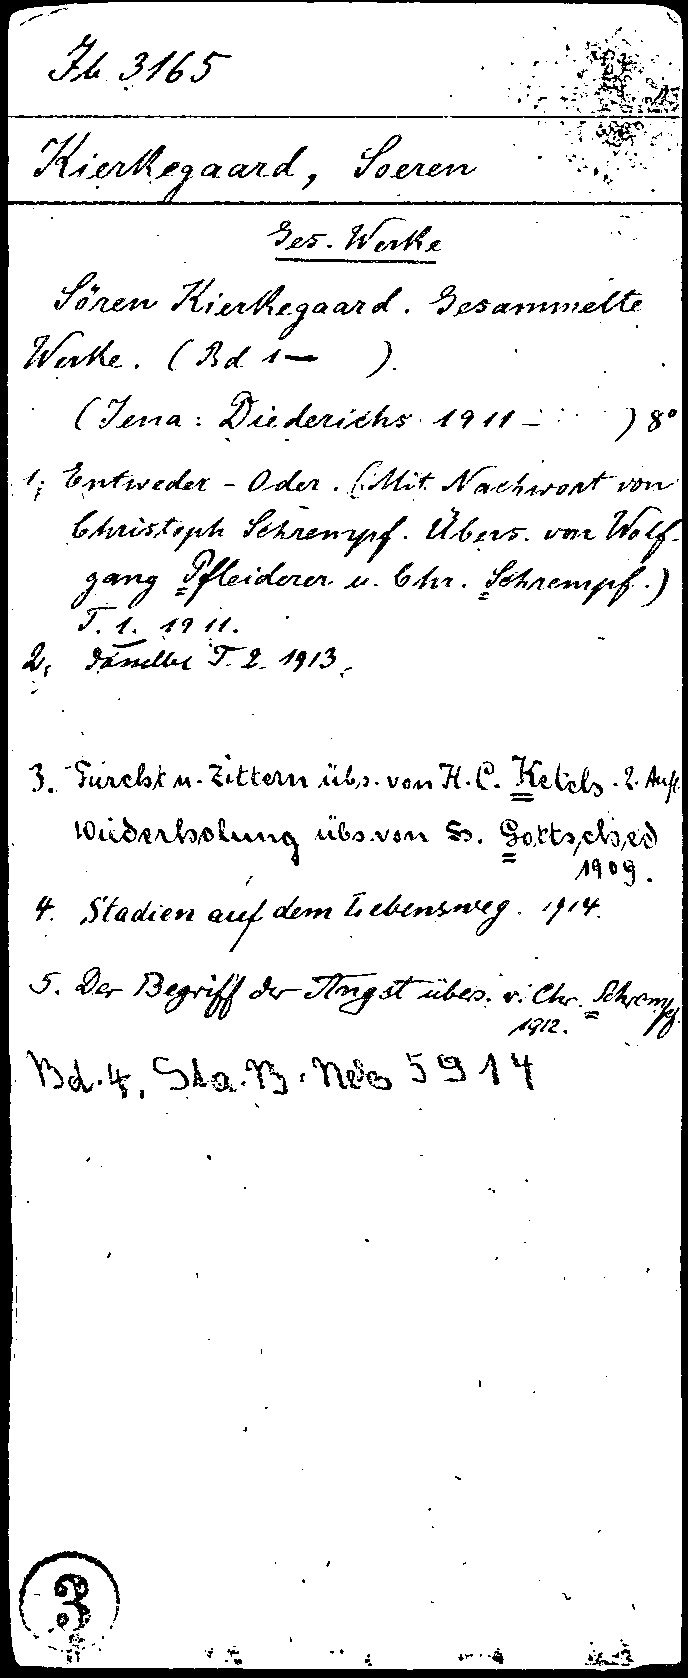 Ib 3165
Kierkegaard, Soeren
Ges. Werke
Sören Kierkegaard. Gesammelte
Werke. (Bd 1— ).
(Jena: Diederichs 1911 - ) 8°
1, Entweder - Oder. (Mit Nachwort von
Christoph Schrempf. Übers. von Wolf-
gang Pfleiderer u. Chr. Schrempf.)
T. 1. 1911.
2, dasselbe T. 2. 1913.
3. Furcht u. Zittern übs. von H. C. Ketels. 2. Aufl.
Wiederholung übs. von H. Gottsched
1909.
4. Stadien auf dem Lebensweg. 1914.
5. Der Begriff der Angst übers. v. Chr. Schrempf.
1912.
Bd. 4, 5 5914
3